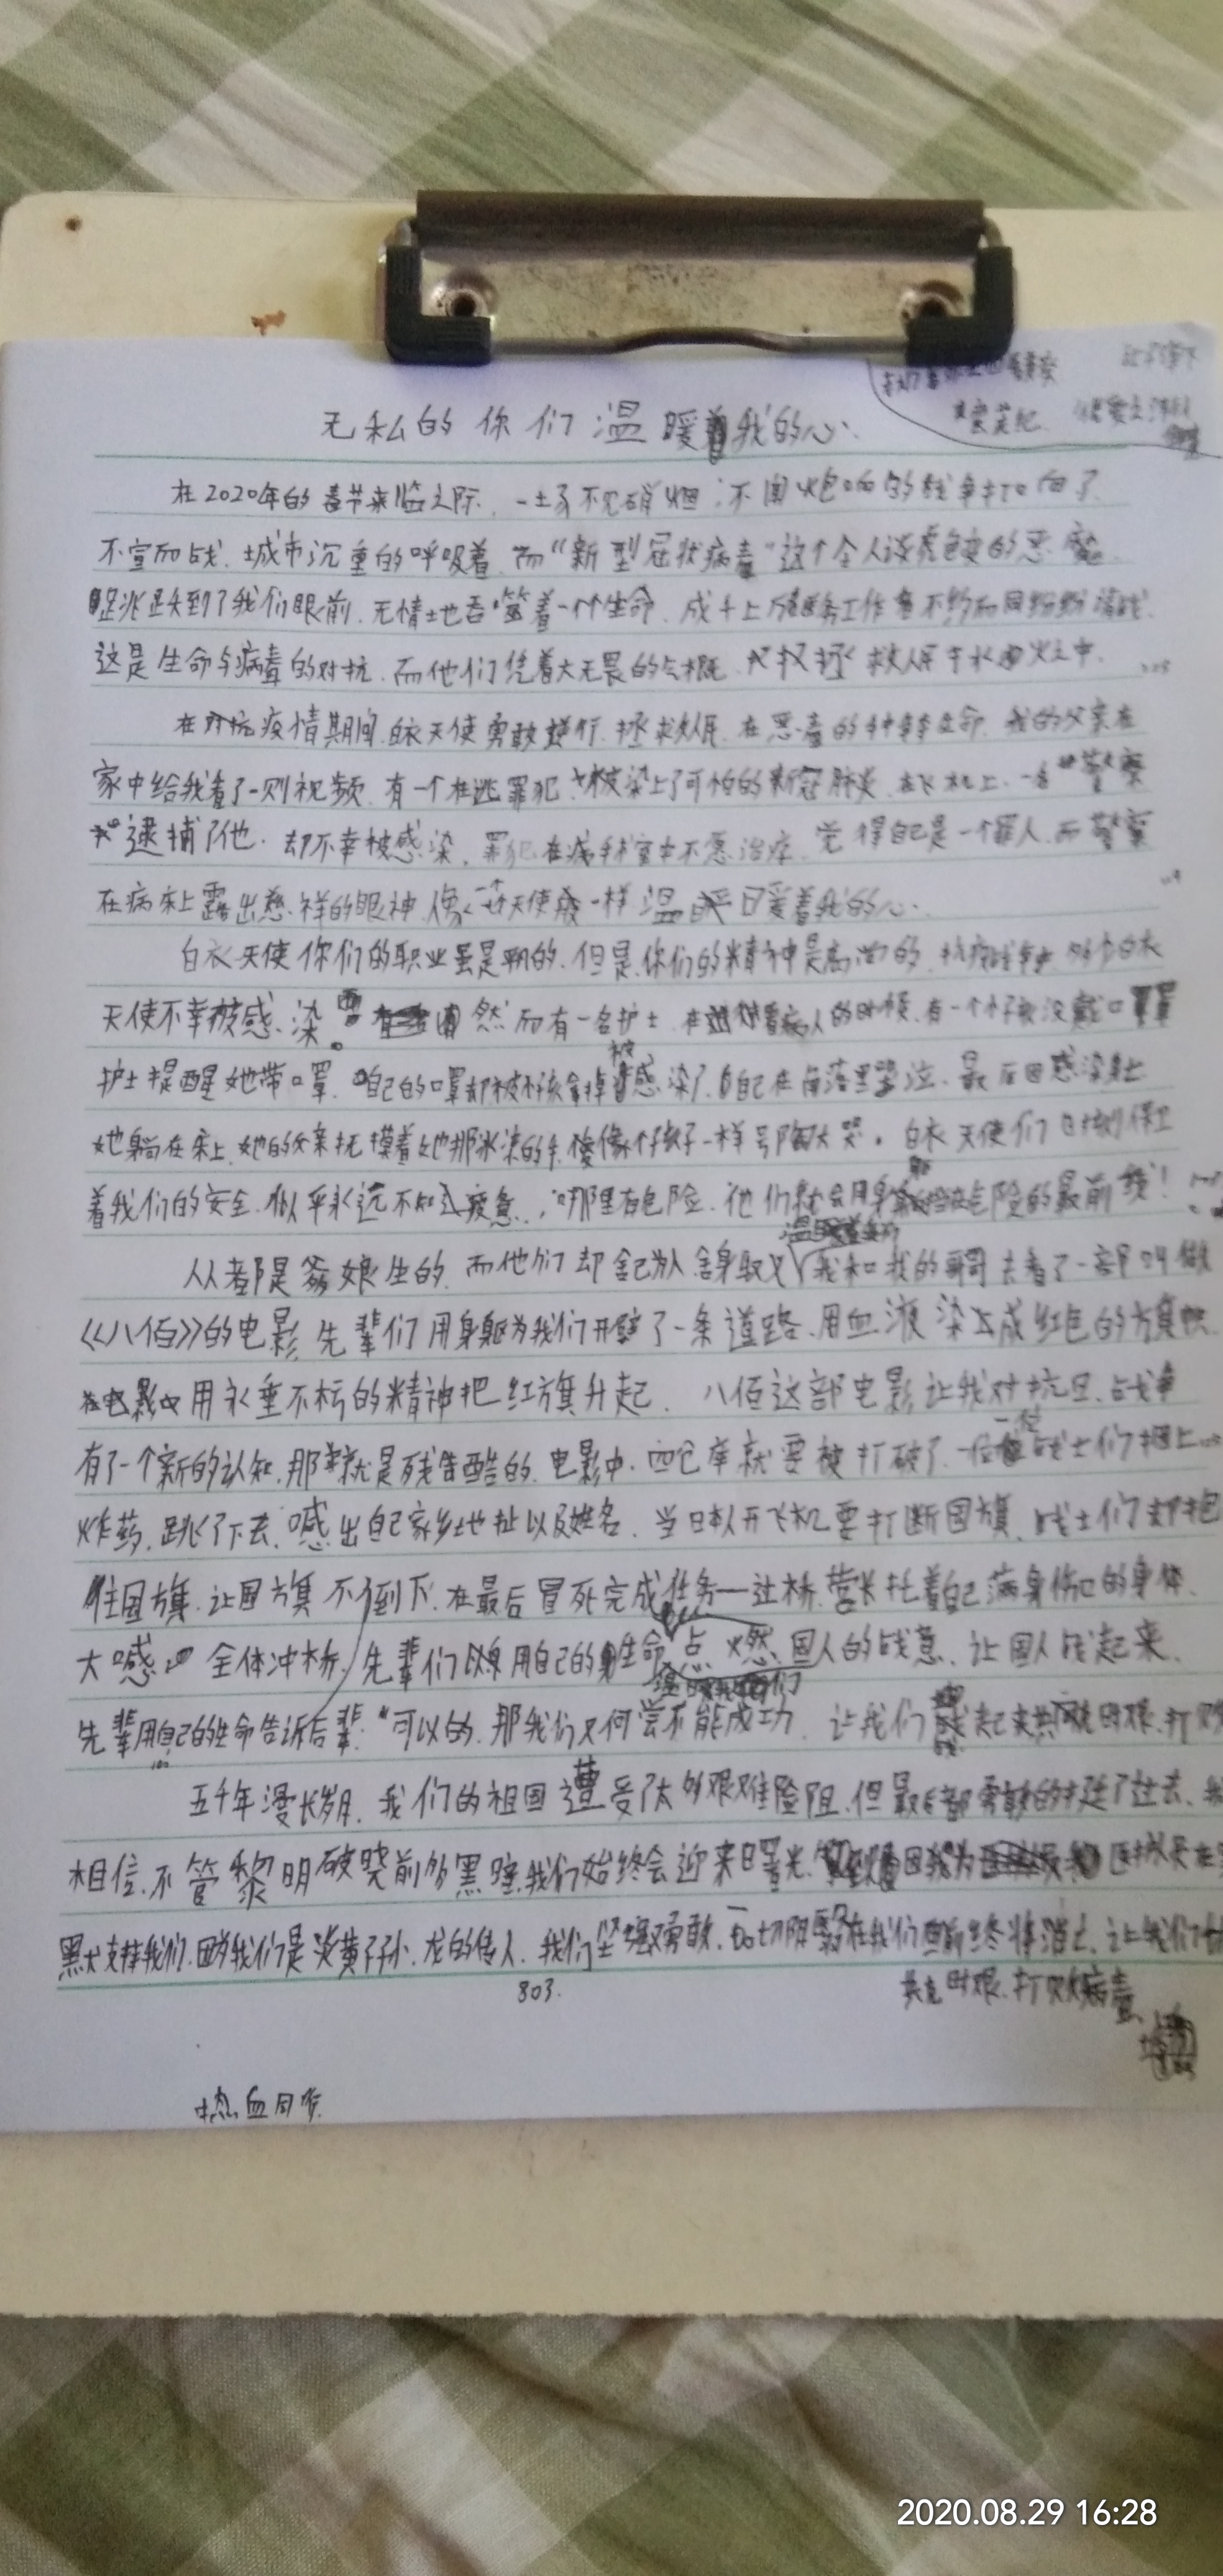 无私的你们温暖着我的心
在2020年的春节来临之际，一场不见硝烟、不闻炮响的战争打响了
不宣而战，城市沉重的呼吸着，而“新型冠状病毒”这个令人谈虎色变的恶魔
跳到了我们眼前，无情地吞噬着一个个生命，成千上万医务工作者不约而同纷纷请战
这是生命与病毒的对抗，而他们凭着大无畏的气概，救人民于水火之中
在对抗疫情期间，白衣天使勇敢逆行，拯求人民，在恶毒的，我的父亲在
家中给我看了一则视频，有一个在逃罪犯被染上了可怕的新冠肺炎，在飞机上，一名警察
逮捕了他，却不幸被感染，罪犯在病室中不愿治疗，觉得自己是一个罪人，而警察
在病床上露出慈祥的眼神，像天使般一样温暖着我的心
白衣天使你们的职业虽是平凡的，但是你们的精神是高尚的，白衣
天使不幸被感染。然而有一名护士，在看病人的时候，有一个孩没戴口罩
护士提醒她带口罩，自己的口罩却被小孩拿掉被感染了，自己在角落里哭泣，最后因感染
她躺在床上，她的父亲抚摸着她那冰凉的手，像个孩子一样号陶大哭。白衣天使们时刻保卫
着我们的安全，似乎永远不知疲惫，哪里有危险，他们就会用身躯挡在危险的最前线！
人人都是爹娘生的，而他们却舍己为人舍身取义 我和我的哥哥去看了一部叫做
《八佰》的电影，先辈们用身躯为我们开辟了一条道路，用血液染成红色的旗帜
在电影中用永垂不朽的精神把红旗升起，八佰这部电影让我对抗日战争
有了一个新的认知，那就是残酷的，电影中，四仓库就要被打破了，战士们捆上
炸药，跳了下去，喊出自己家乡地址以及姓名，当日本人开飞机要打断国旗，战士们却把
住国旗，让国旗不倒下，在最后冒死完成任务—过桥，营长托着自己满身伤口的身体
大喊，全体冲桥，先辈们用自己的生命点燃国人的战意，让国人战起来
先辈用自己的生命告诉后辈“可以的，那我们又何尝不能成功，让我们起来共克时艰，打败
五千年漫长岁月，我们的祖国遭受了太多艰难险阻，但最后都勇敢的挺了过去，我
相信，不管黎明破晓前多黑暗，我们始终会迎来曙光，因为
默默支持我们，因为我们是炎黄子孙，龙的传人，我们坚强勇敢，一切阴霾在我们面前终将消亡，让我们
803.
共克时艰，打败病毒
热血
2020.08.29 16:28